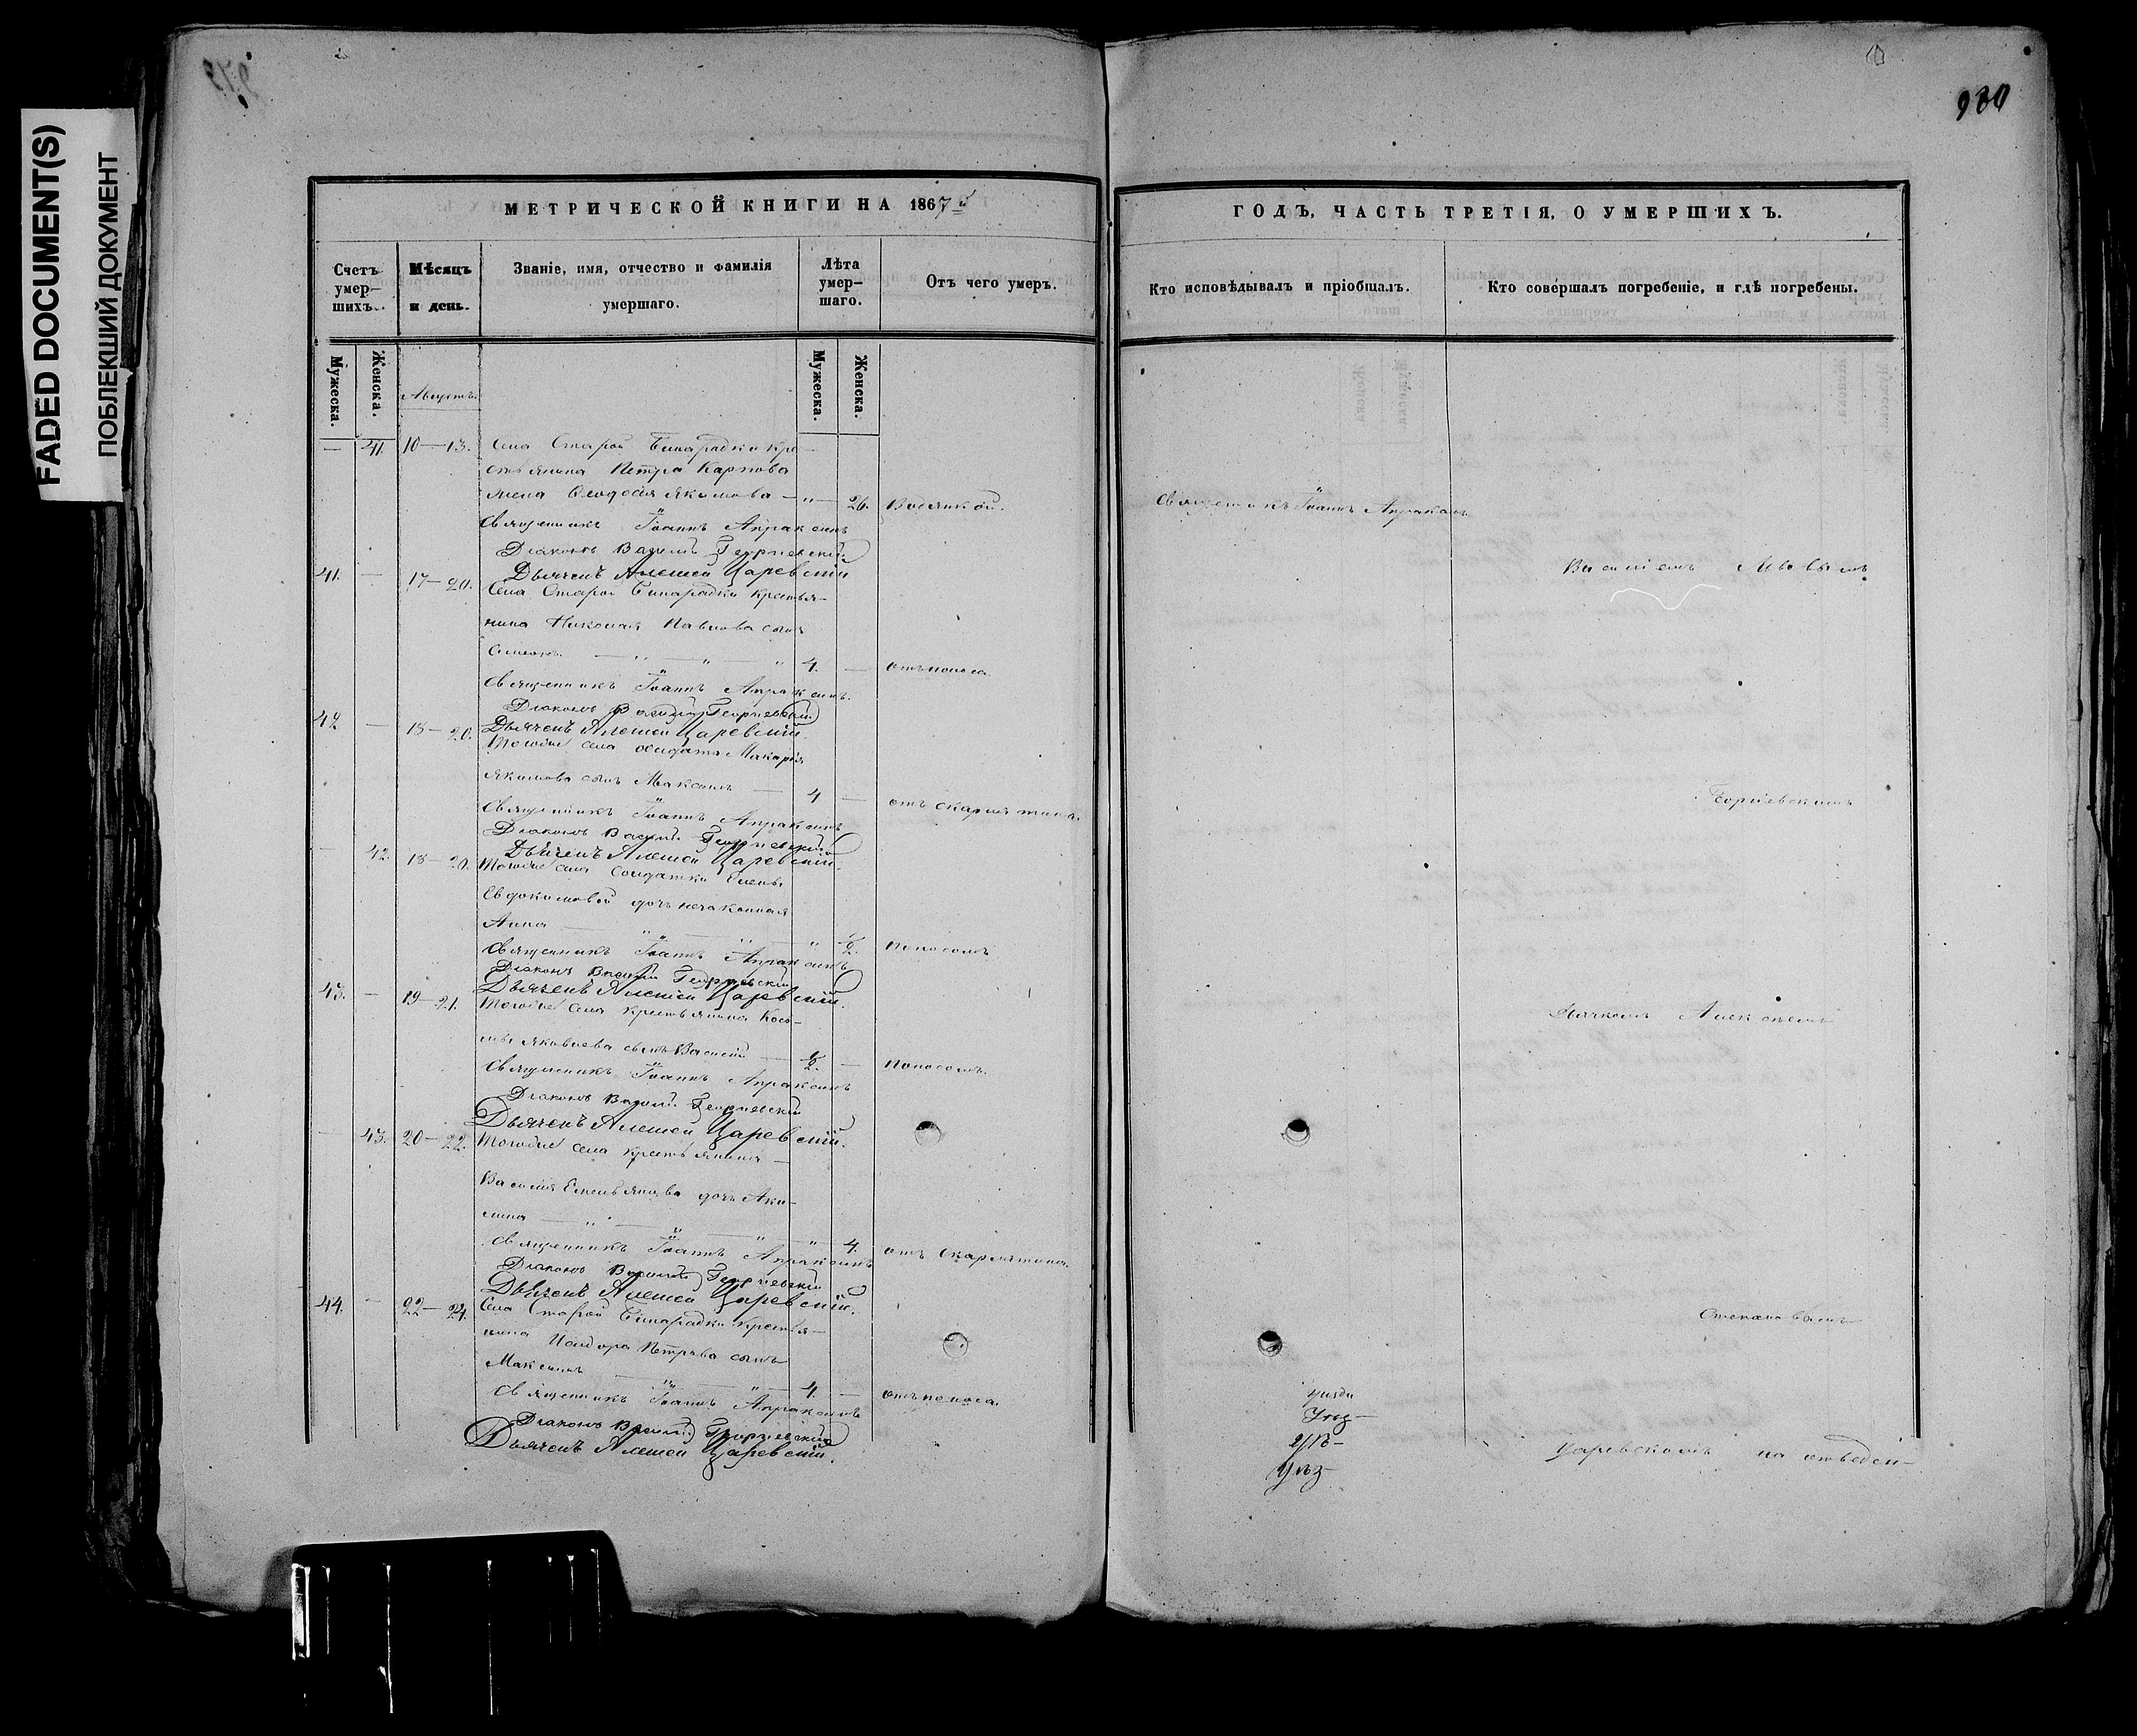 FADED DOCUMENT(S)
ПОБЛЕКШИЙ ДОКУМЕНТ
930
МЕТРИЧЕСКОЙ КНИГИ НА 1867й
ГОДЪ, ЧАСТЬ ТРЕТІЯ, О УМЕРШИХЪ.
Счетъ умер-шихъ.
Мѣсяцъ и день.
Званіе, имя, отчество и фамилія умершаго.
Лѣта умер-шаго.
Отъ чего умеръ.
Кто исповѣдывалъ и пріобщалъ.
Кто совершалъ погребеніе, и гдѣ погребены.
Мужеска. Женска.
Мужеска. Женска.
Августъ.
— 41. 10—13. Села Старой Бинарадки кре-
стьянина Петра Карпова
жена Ѳеодосія Якимова — " — 26. Водянкой.
Священникъ Іоаннъ Апраксинъ
Священникъ Іоаннъ Апраксинъ
Діаконъ Василій Георгіевскій
Дьячекъ Алексей Царевскій
41. — 17—20. Села Старой Бинарадки крестья-
нина Николая Павлова сынъ
Симеонъ — " — " — " 4. — отъ поноса
Священникъ Іоаннъ Апраксинъ.
Діаконъ Василій Георгіевскій
Дьячекъ Алексей Царевскій.
42 — 18—20. Тогоже села солдата Макарія
Якимова сынъ Максимъ — 4 — отъ скарлатина.
Священникъ Іоаннъ Апраксинъ
Діаконъ Василій Георгіевскій
Дьячекъ Алексей Царевскій.
— 42. 18—20. Тогоже села солдатки Елены
Евдокимовой дочь незаконная
Анна — " — " — " 1/2. Поносомъ
Священникъ Іоаннъ Апраксинъ
Діаконъ Василій Георгіевскій
Дьячекъ Алексей Царевскій.
43. — 19—21. Тогоже села крестьянина Кось-
мы Яковлева сынъ Василій — 1/2. — Поносомъ.
Священникъ Іоаннъ Апраксинъ
Діаконъ Василій Георгіевскій
Дьячекъ Алексей Царевскій.
— 43. 20—22. Тогоже села крестьянина —
Василія Емельянова дочь Аки-
лина — " — " — " — 4. отъ скарлатина.
Священникъ Іоаннъ Апраксинъ
Діаконъ Василій Георгіевскій
Дьячекъ Алексей Царевскій.
44. — 22—24. Села Старой Бинарадки крестья-
нина Исидора Петрова сынъ
Максимъ — " — " — 4. — отъ поноса.
Священникъ Іоаннъ Апраксинъ
Діаконъ Василій Георгіевскій
Дьячекъ Алексей Царевскій.
Василіемъ
Георгіевскимъ
Дьячкомъ Алексѣемъ
Степановымъ
Царевскомъ на отведен-